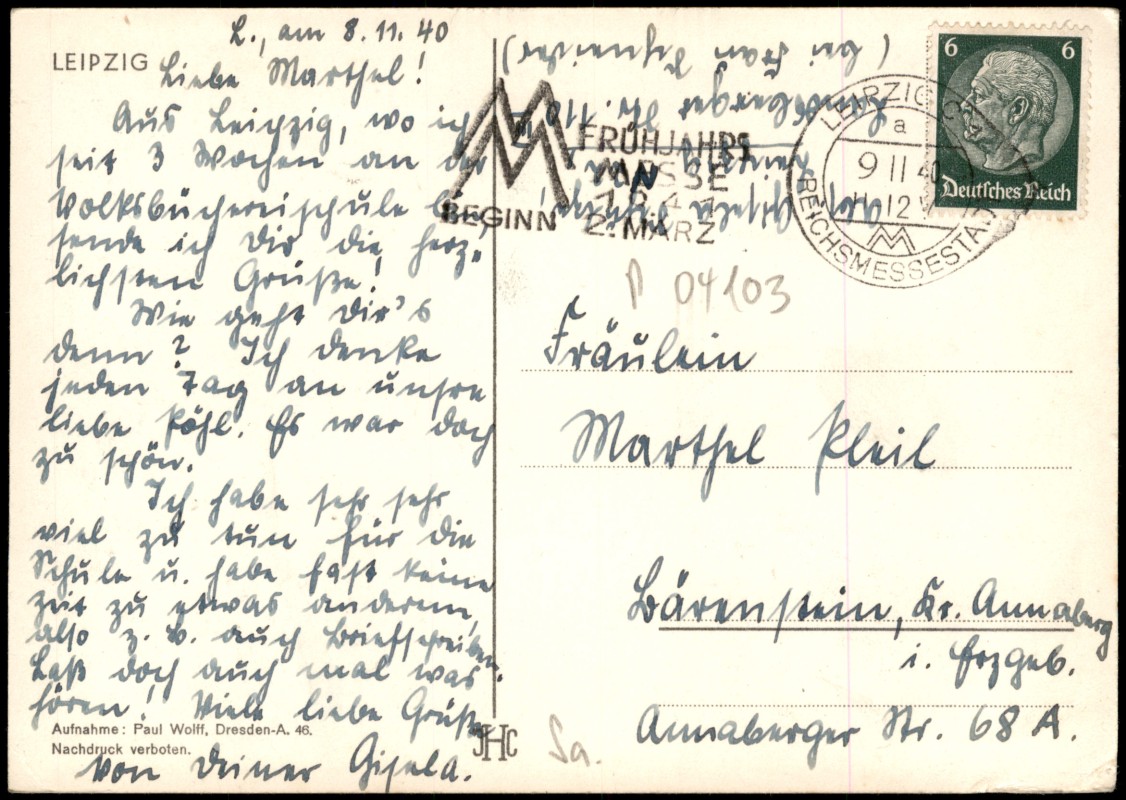 L., am 8.11.40
LEIPZIG
Liebe Marthel!
Aus Leipzig, wo ich
seit 3 Wochen an der
Volksbüchereischule bin,
sende ich Dir die herz-
lichsten Grüße!
Wie geht Dir's
denn? Ich denke
jeden Tag an unsre
liebe Pöhl. Es war doch
zu schön.
Ich habe sehr sehr
viel zu tun für die
Schule u. habe fast keine
Zeit zu etwas anderem,
also z. B. auch Briefschreiben.
Laß doch auch mal was
hören! Viele liebe Grüße
von Deiner Gisela.
Aufnahme: Paul Wolff, Dresden-A. 46.
Nachdruck verboten.
JHC
Abs. Gisela
Leipzig
Str. 118
(bei Frau
FRÜHJAHRS
MESSE
1941
BEGINN 2. MÄRZ
LEIPZIG C
a
9 11 40
11-12
REICHSMESSESTADT
6 6
Deutsches Reich
P 04103
Fräulein
Marthel Pleil
Bärenstein, Kr. Annaberg
i. Erzgeb.
Annaberger Str. 68 A.
Sa.